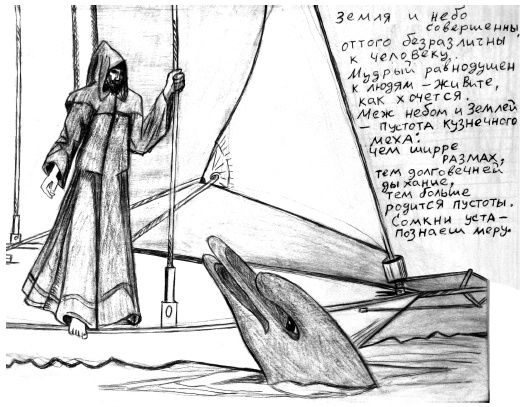 Земля и небо
совершенны,
оттого безразличны
к человеку.
Мудрый равнодушен
к людям – живите,
как хочется.
Меж небом и Землей
– пустота кузнечного
меха:
чем ширре
размах,
тем долговечней
дыхание,
тем больше
родится пустоты.
Сомкни уста –
познаеш меру.